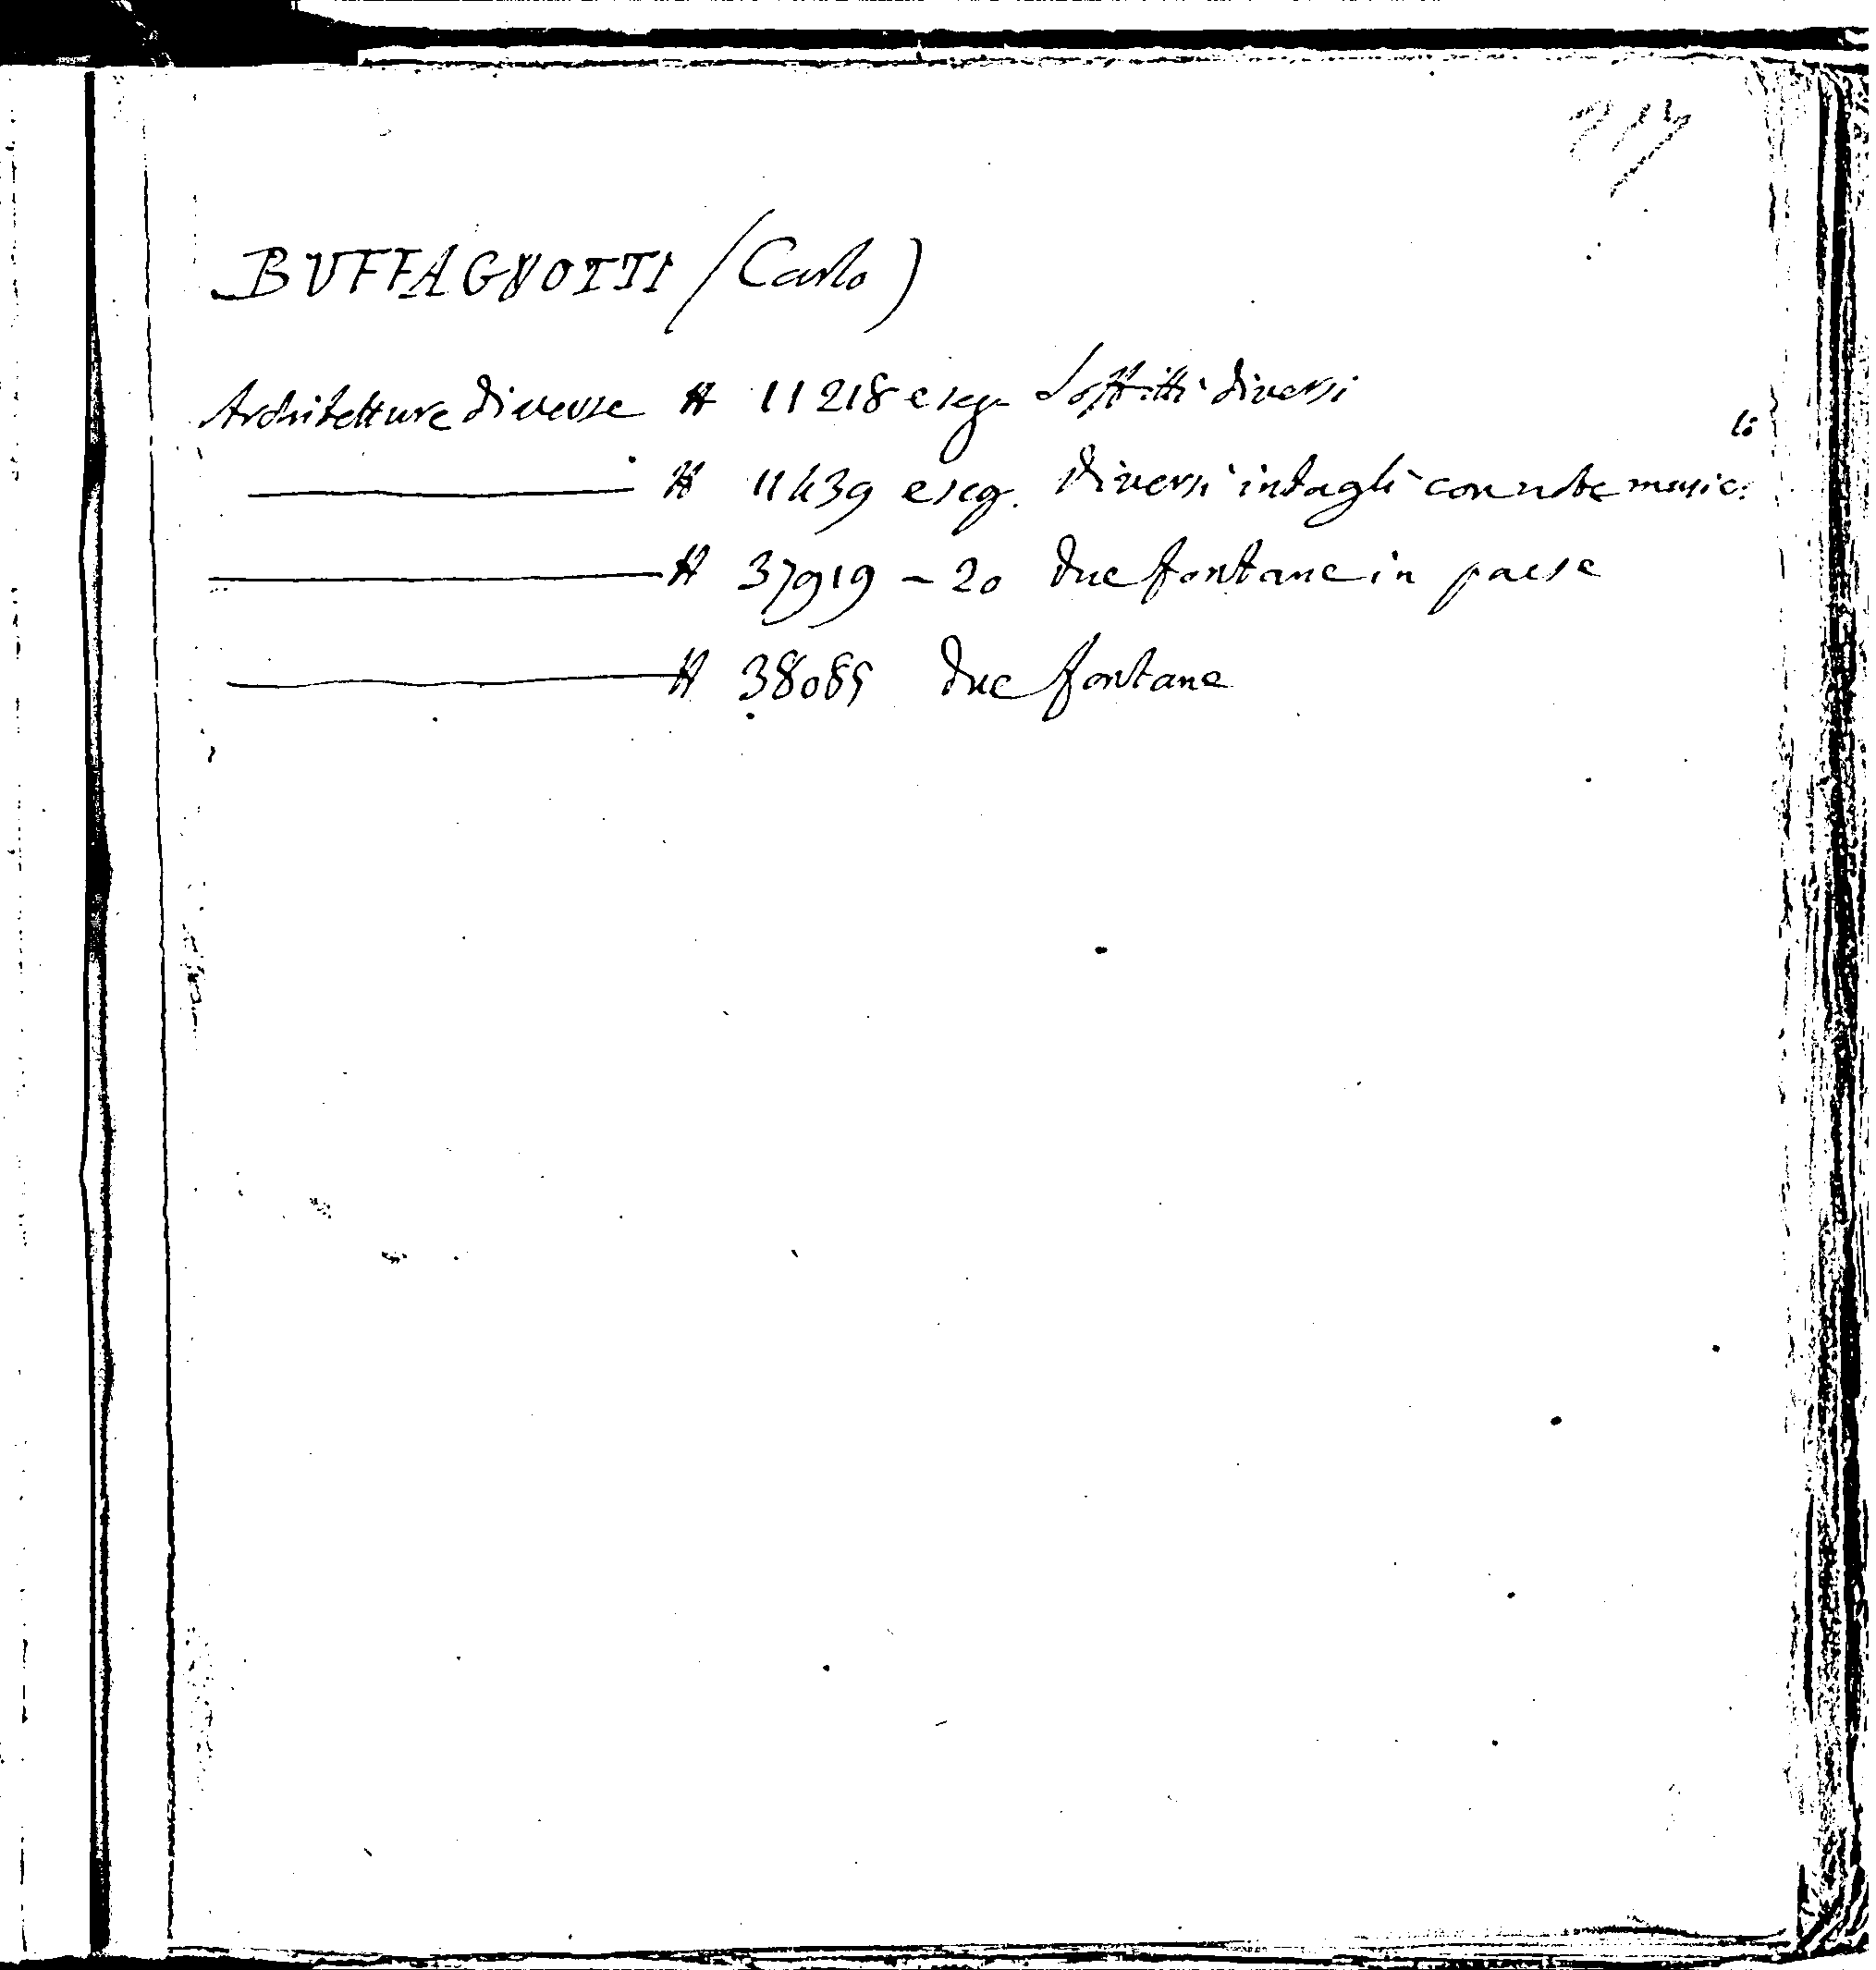 BUFFAGNOTTI (Carlo)
Architetture diverse # 11218 e seg. Soffitti diversi
# 11439 e seg. Diversi intagli con note music:li
# 37919 - 20 due fontane in paese
# 38085 due fontane